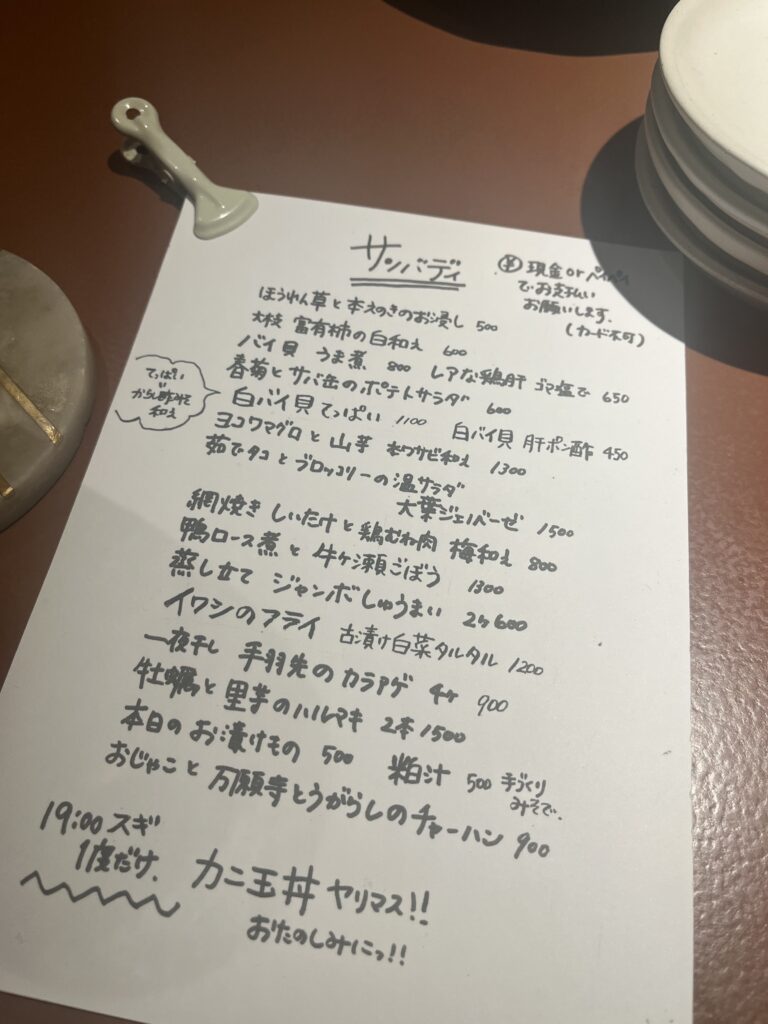 サンバディ
¥ 現金orペイペイ
でお支払い
お願いします。
(カード不可)
ほうれん草と本えのきのお浸し 500
大枝 富有柿の白和え 600
バイ貝 うま煮 800 レアな鶏肝 ゴマ塩で 650
春菊とサバ缶のポテトサラダ 600
てっぱい
〃
からし酢みそ
和え
白バイ貝てっぱい 1100 白バイ貝 肝ポン酢 450
ヨコワマグロと山芋 本ワサビ和え 1300
茹でタコとブロッコリーの温サラダ
大葉ジェノバーゼ 1500
網焼き しいたけと鶏むね肉 梅和え 800
鴨ロース煮と牛ヶ瀬ごぼう 1300
蒸し立て ジャンボしゅうまい 2ヶ600
イワシのフライ 古漬け白菜タルタル 1200
一夜干し 手羽先のカラアゲ 4ヶ 900
牡蠣と里芋のハルマキ 2本1500
本日のお漬けもの 500 粕汁 500 手づくり
みそで。
おじゃこと万願寺とうがらしのチャーハン 900
19:00スギ
1度だけ。
カニ玉丼ヤリマス!!
おたのしみにっ!!